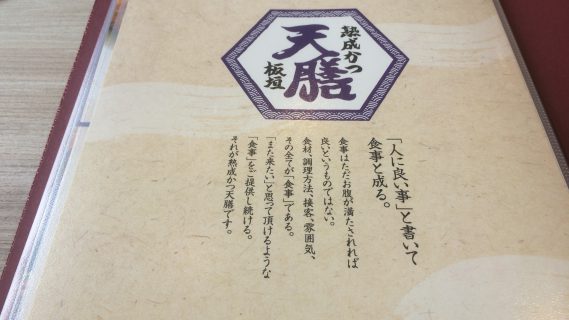 熟成かつ
天膳
板垣
「人に良い事」と書いて
食事と成る。
食事はただお腹が満たされれば
良いというものではない。
食材、調理方法、接客、雰囲気、
その全てが「食事」である。
「また来たい」と思って頂けるような
「食事」をご提供し続ける。
それが熟成かつ天膳です。